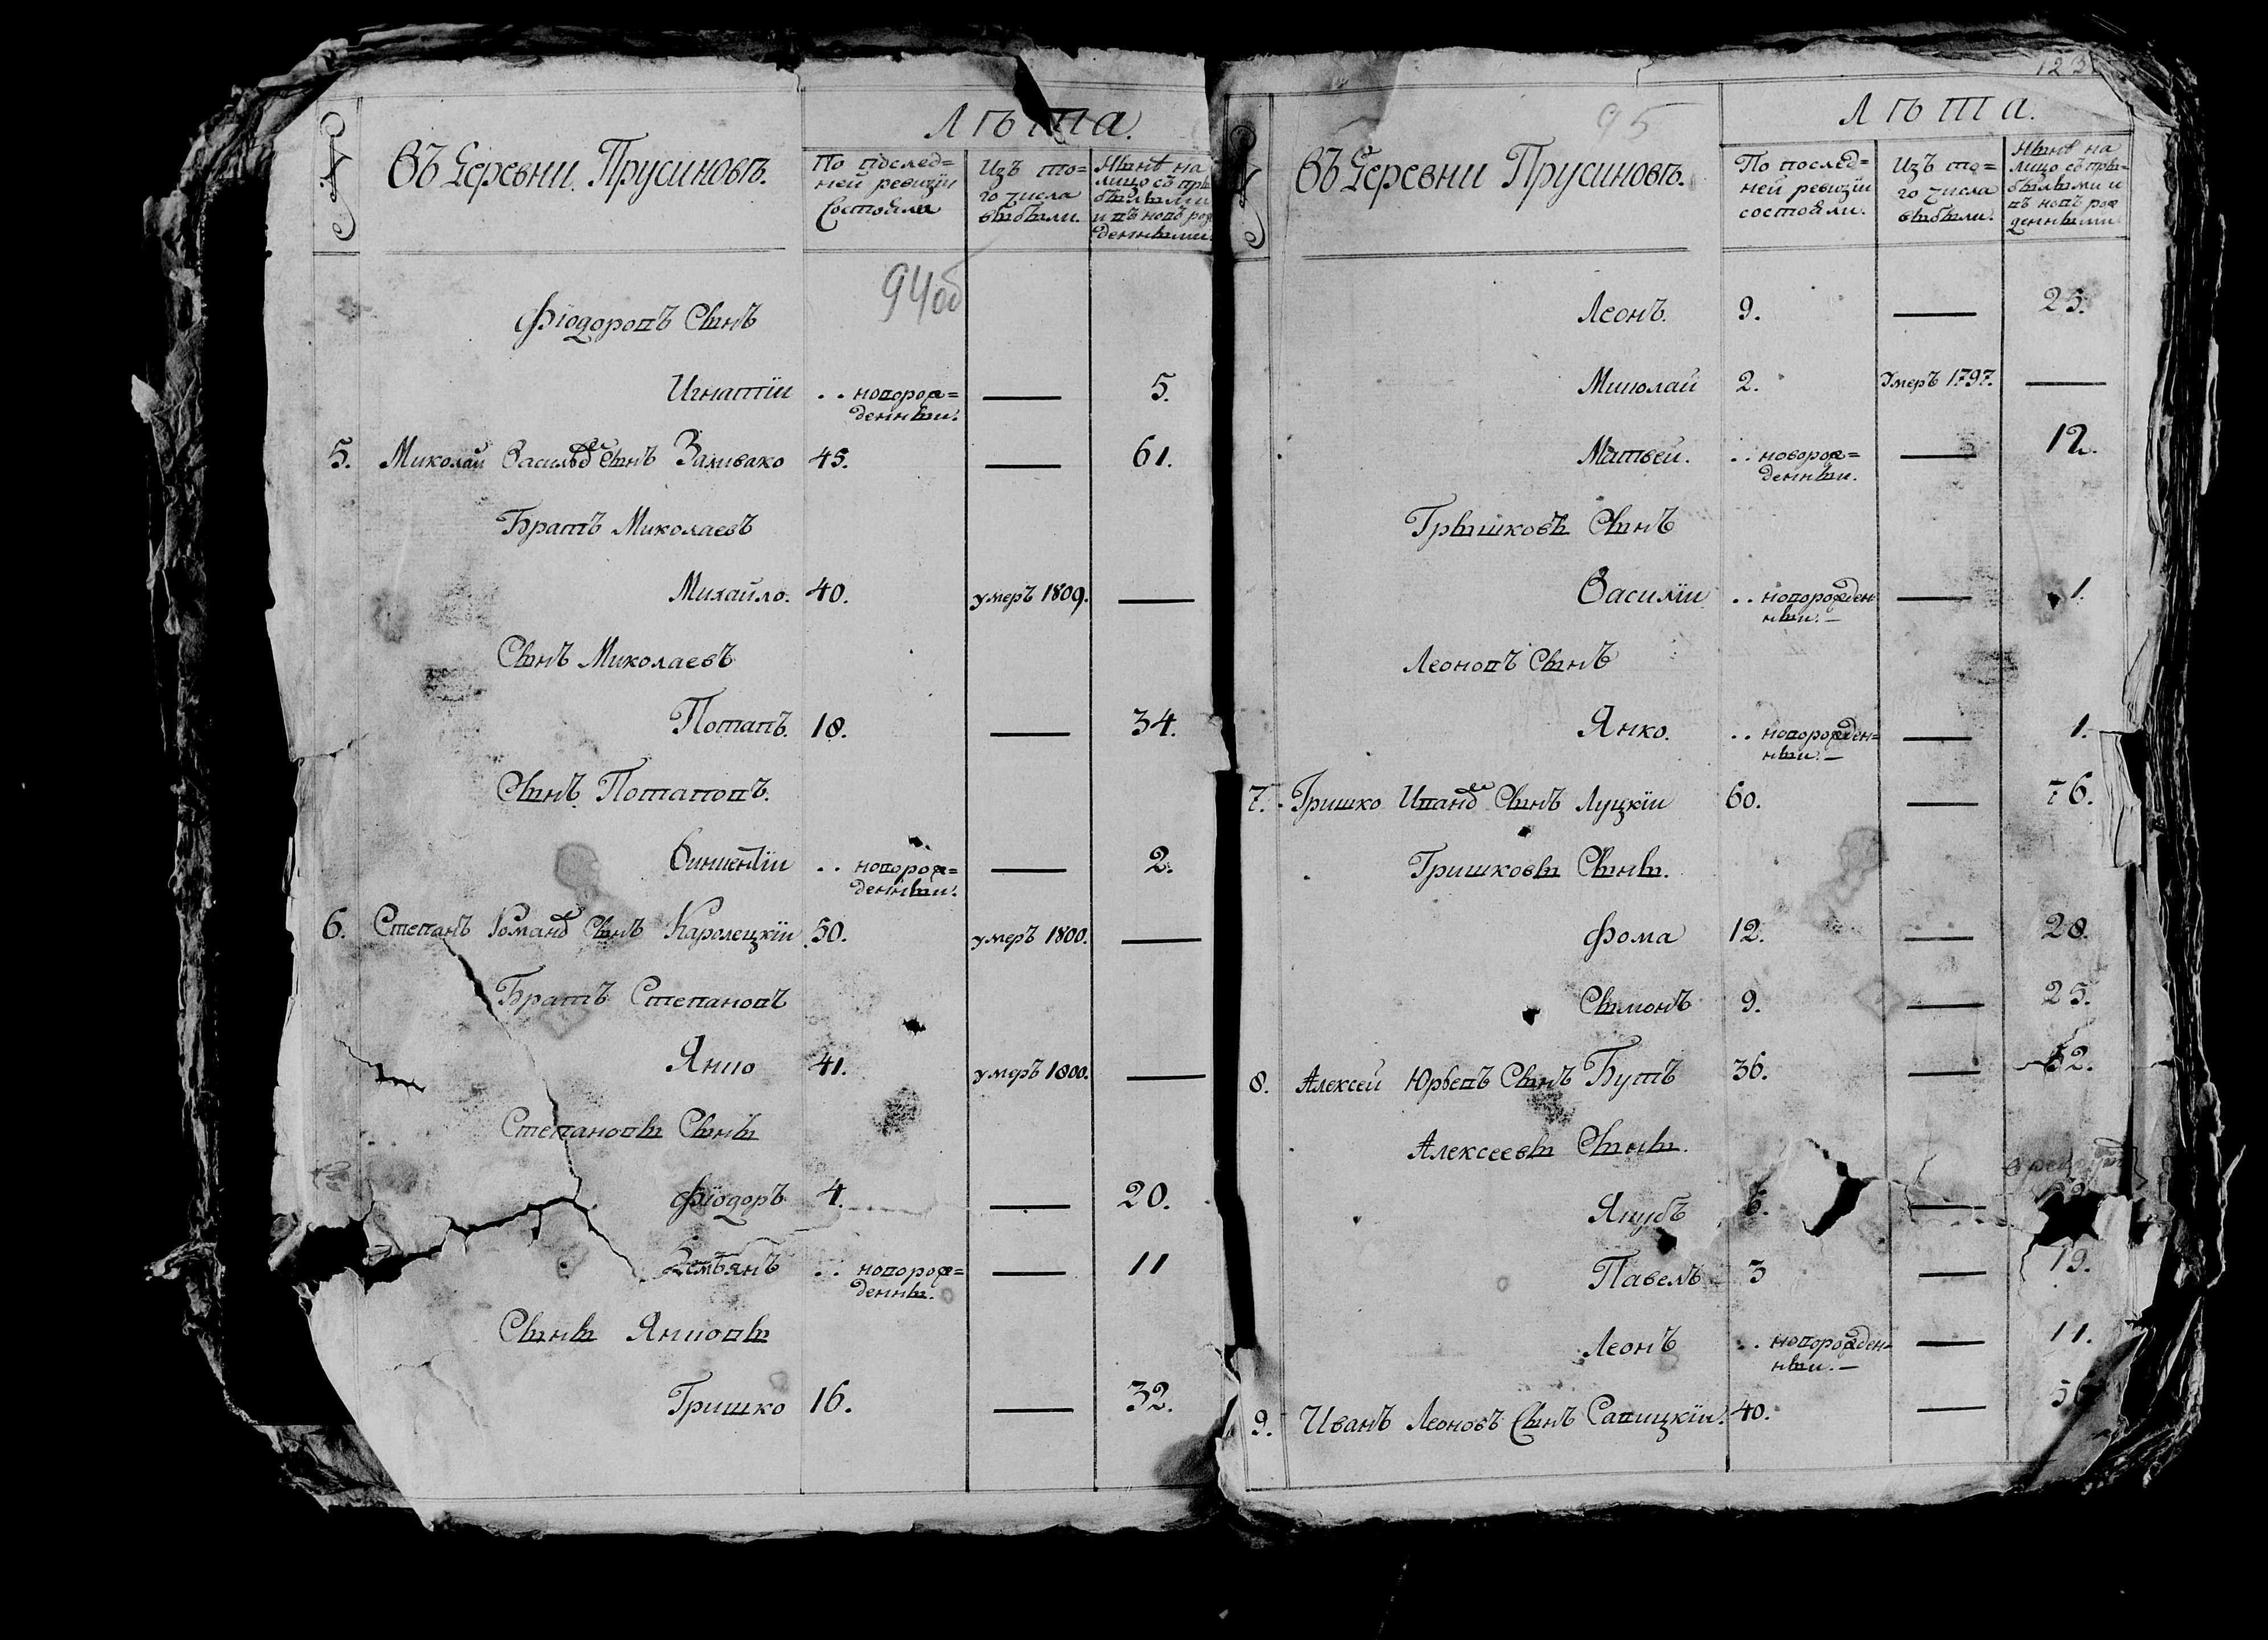 №
Въ Деревни Прусиновъ.
Лѣта.
По послед=
ней ревизіи
состояли
Изъ то=
го числа
выбыли.
Нынѣ на
лицо съ при
былыми
и въ новъ рож
денными.
94об
Фіодоровъ Сынъ
Игнатіи . . новорож= — 5.
денныи.
5. Миколай Васильевъ Сынъ Заливако 45. — 61.
Братъ Миколаевъ
Михайло. 40. умеръ 1809. —
Сынъ Миколаевъ
Потапъ. 18. — 34.
Сынъ Потаповъ.
Винцентіи . . новорож= — 2.
денныи.
6. Степанъ Романовъ Сынъ Каролецкіи 50. умеръ 1800. —
Братъ Степановъ
Янко 41. умеръ 1800. —
Степановы Сыны
Фіодоръ 4. — 20.
Демьянъ . . новорож= — 11
денны.
Сыны Янковы
Гришко 16. — 32.
123
95
№
Въ Деревни Прусиновъ.
Лѣта.
По послед=
ней ревизіи
состояли.
Изъ то=
го числа
выбыли.
Нынѣ на
лицо съ при=
былыми и
въ новъ рож
денными
Леонъ. 9. — 25.
Миколай 2. Умеръ 1797. —
Матвей. . . новорож= — 12.
денныи.
Грышковъ Сынъ
Василіи . . новорожден — 1.
ныи. —
Леоновъ Сынъ
Янко. . . новорожден= — 1.
ныи. —
7. Гришко Ивановъ Сынъ Луцкіи 60. — 76.
Гришковы Сыны.
Фома 12. — 28.
Сымонъ 9. — 25.
8. Алексей Юрьевъ Сынъ Бутъ 36. — 52.
Алексеевы Сыны.
Якубъ 6. —
Павелъ 3 — 19.
Леонъ . . новорожден= — 11.
ныи. —
9. Иванъ Леоновъ Сынъ Савицкіи. 40. —